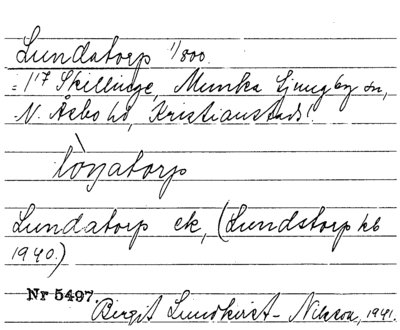 Lundatorp 1/800
= 1/7 Skillinge, Munka Ljungby sn,
N. Åsbo hd, Kristianstads l.
lòŋatorp
Lundatorp ek, (Lundstorp kb
1940.)
Nr 5497.
Birgit Lundkvist-Nilsson, 1941.